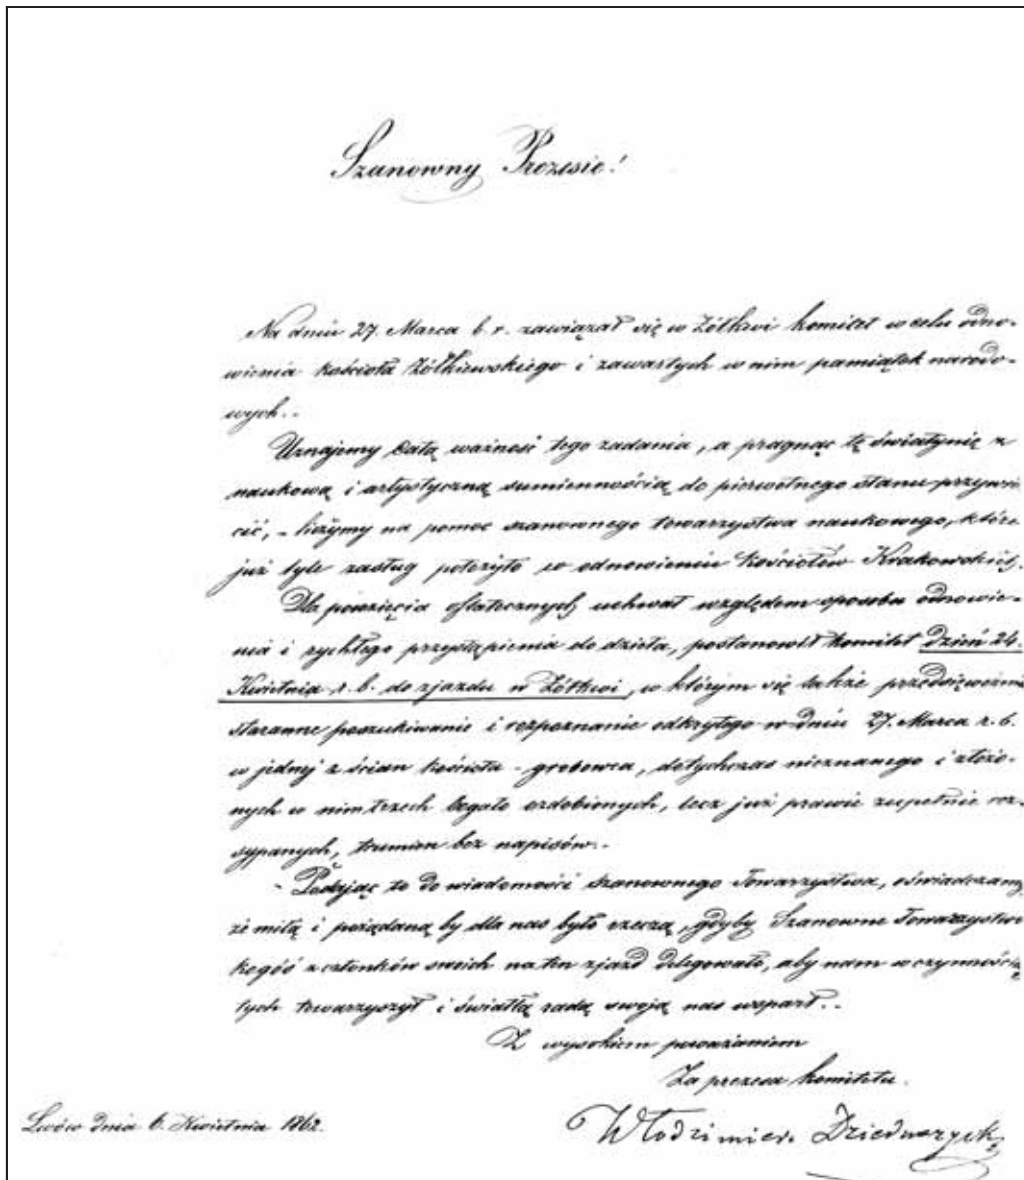 Szanowny Prezesie!
Na dniu 27. Marca b. r. zawiązał się w Żółkwi komitet w celu odno-
wienia kościoła Żółkiewskiego i zawartych w nim pamiątek narodo-
wych..
Uznajemy całą ważność tego zadania, a pragnąc tę świątynię z
naukową i artystyczną sumiennością do pierwotnego stanu przywró-
cić, - liczymy na pomoc szanownego towarzystwa naukowego, które
już tyle zasług położyło w odnowieniu Kościołów Krakowskich.
Dla powzięcia ostatecznych uchwał względem sposobu odnowie-
nia i rychłego przystąpienia do dzieła, postanowił komitet dzień 24.
Kwietnia r. b. do zjazdu w Żółkwi, w którym się także przedsięweźmie
staranne poszukiwanie i rozpoznanie odkrytego w dniu 27. Marca r. b.
w jednej z ścian kościoła - grobowca, dotychczas nieznanego i złożo-
nych w nim trzech bogato ozdobionych, lecz już prawie zupełnie roz-
sypanych, trumien bez napisów..
- Podając to do wiadomości szanownego Towarzystwa, oświadczamy
że miłą i pożądaną by dla nas było rzeczą, gdyby Szanowne Towarzystwo
kogóś z członków swoich na ten zjazd delegowało, aby nam w czynnościach
tych towarzyszył i światłą radą swoją nas wsparł..
Z wysokiem poważaniem
Za prezesa komitetu.
Lwów dnia 6. Kwietnia 1862.
Włodzimierz Dzieduszycki